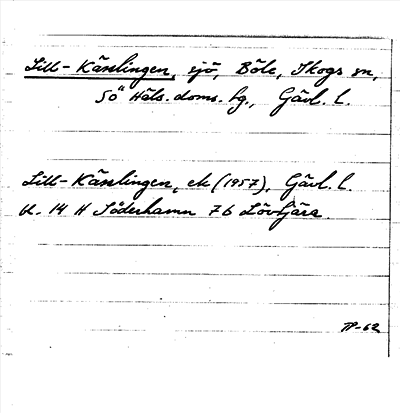 Lill-Kärslingen, sjö, Böle, Skogs sn,
SÖ Häls. doms. sg., Gävl. l.
Lill-Kärslingen, ek (1957), Gävl. l.
bl. 14 H Söderhamn 7b Lövtjära.
TP-62